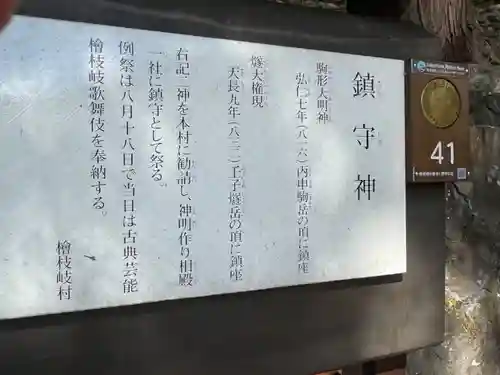 鎮守神
駒形大明神
弘仁七年(八一六)丙申駒岳の頂に鎮座
燧大権現
天長九年(八三二)壬子燧岳の頂に鎮座
右記二神を本村に勧請し、神明作り相殿
一社に鎮守として祭る。
例祭は八月十八日で当日は古典芸能
檜枝岐歌舞伎を奉納する。
檜枝岐村
41